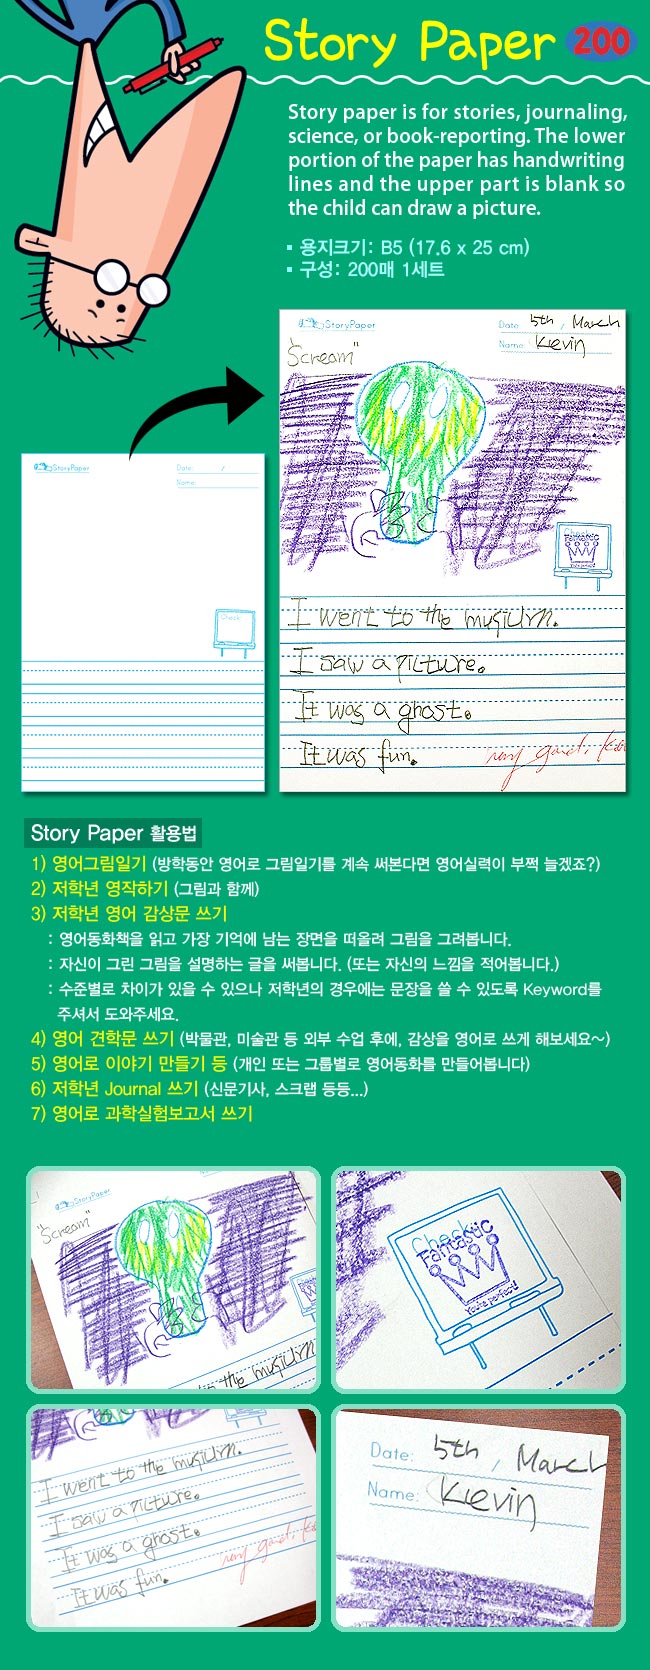 Story Paper 200
Story paper is for stories, journaling,
science, or book-reporting. The lower
portion of the paper has handwriting
lines and the upper part is blank so
the child can draw a picture.
▪ 용지크기: B5 (17.6 x 25 cm)
▪ 구성: 200매 1세트
StoryPaper
Date: 5th, March
Name: Kevin
"Scream"
StoryPaper
Date: /
Name:
Check
Fantastic
I went to the musiurm.
I saw a picture.
It was a ghost.
It was fun.
very good,
Story Paper 활용법
1) 영어그림일기 (방학동안 영어로 그림일기를 계속 써본다면 영어실력이 부쩍 늘겠죠?)
2) 저학년 영작하기 (그림과 함께)
3) 저학년 영어 감상문 쓰기
: 영어동화책을 읽고 가장 기억에 남는 장면을 떠올려 그림을 그려봅니다.
: 자신이 그린 그림을 설명하는 글을 써봅니다. (또는 자신의 느낌을 적어봅니다.)
: 수준별로 차이가 있을 수 있으나 저학년의 경우에는 문장을 쓸 수 있도록 Keyword를
주셔서 도와주세요.
4) 영어 견학문 쓰기 (박물관, 미술관 등 외부 수업 후에, 감상을 영어로 쓰게 해보세요~)
5) 영어로 이야기 만들기 등 (개인 또는 그룹별로 영어동화를 만들어봅니다)
6) 저학년 Journal 쓰기 (신문기사, 스크랩 등등...)
7) 영어로 과학실험보고서 쓰기
StoryPaper
"Scream"
the musiurm.
Check
Fantastic
You're perfect!
I went to the musiurm.
I saw a picture.
It was a ghost.
It was fun.
very good,
Date: 5th, March
Name: Kevin